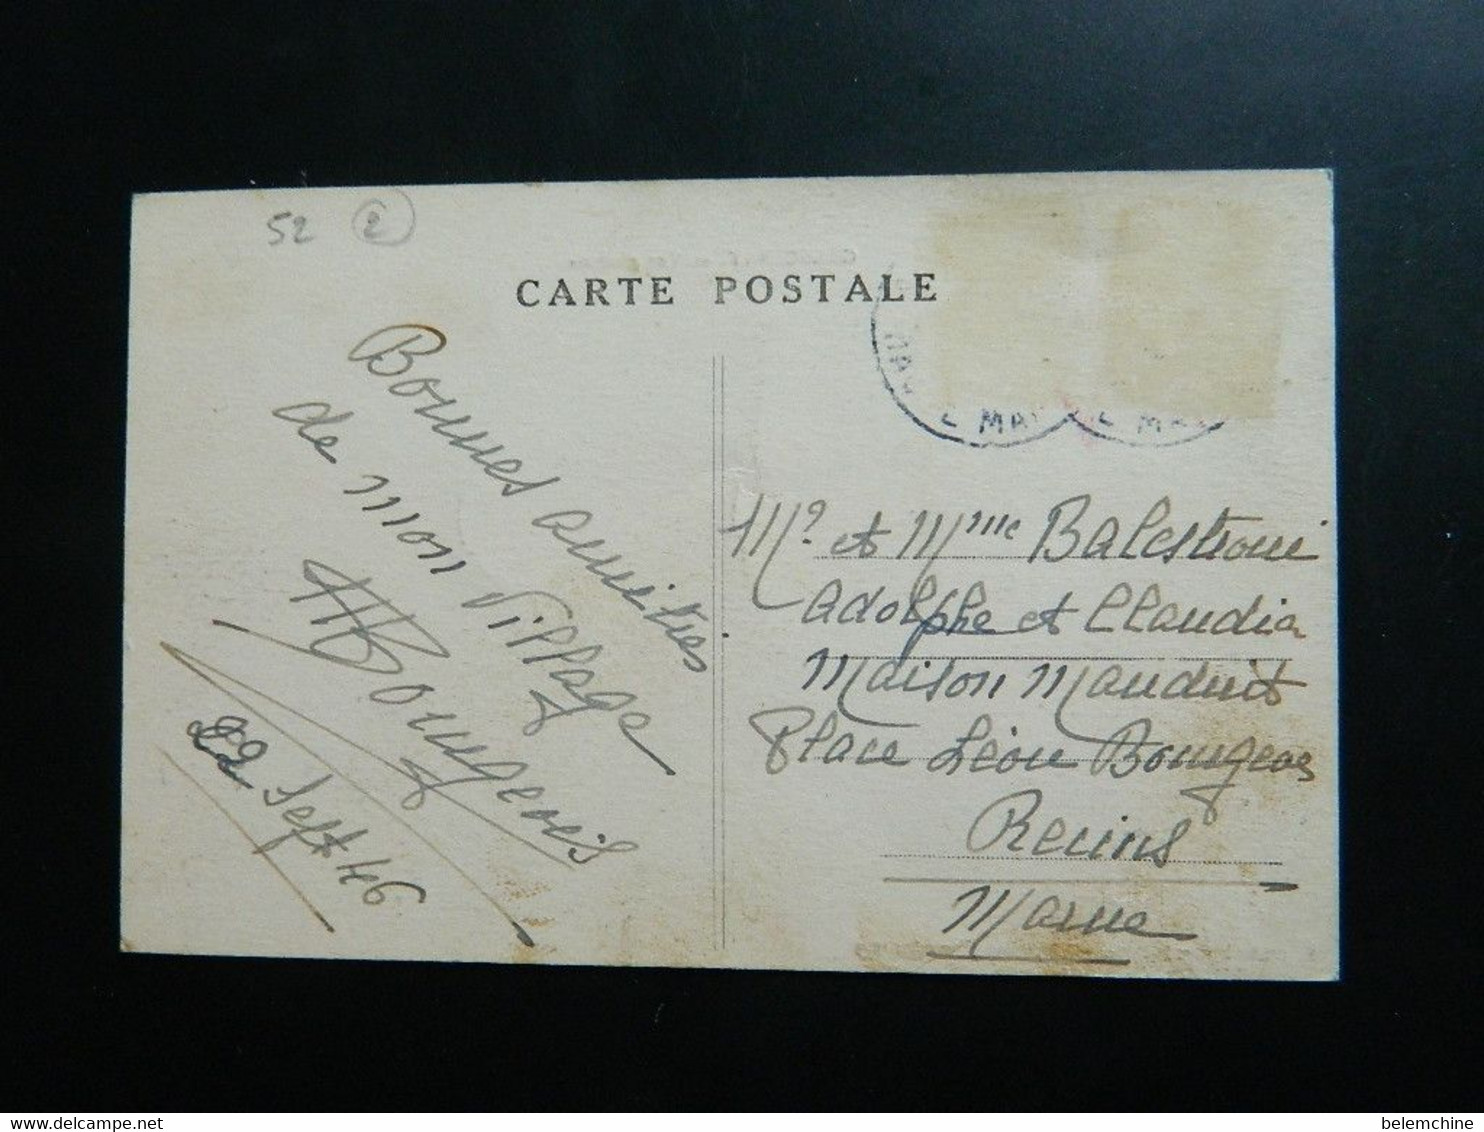 52 2
CARTE POSTALE
Bonnes amitiés
de mon village
Bourgeois
22 Sept 46
E MAR
E MAR
Mr et Mme Balestroni
Adolphe et Claudia
Maison Mauduit
Place Léon Bourgeois
Reims
Marne
belemchine